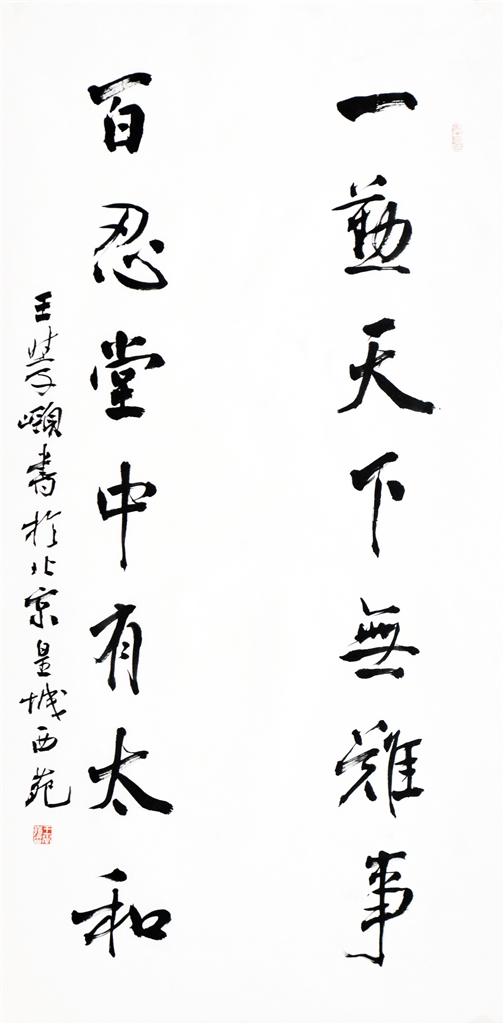 一勤天下無難事
百忍堂中有太和
王學嶺書於北京皇城西苑